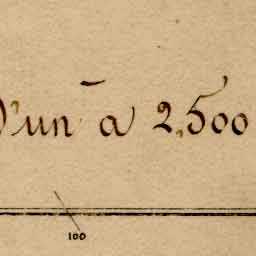 D'un à 2,500
100